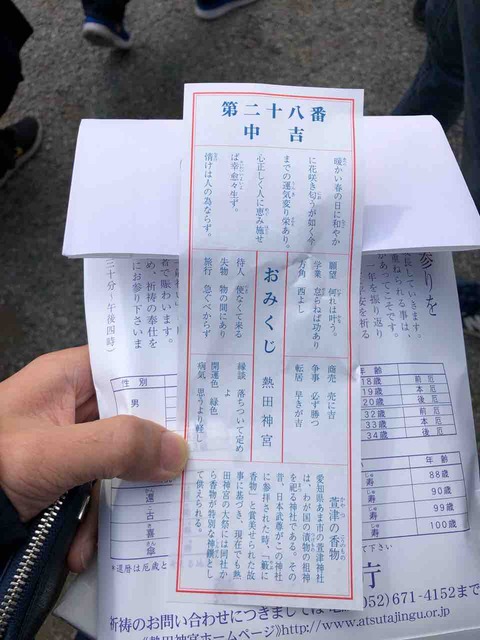 第二十八番
中吉
暖かい春の日に和やか
に花咲き匂うが如く今
までの運気変り栄あり。
心正しく人に恵み施せ
ば幸愈々生ず。
情けは人の為ならず。
おみくじ 熱田神宮
願望 何れは叶う。
学業 怠らねば功あり
方角 西よし
商売 売に吉
争事 必ず勝つ
転居 早きが吉
待人 便なくて来る
失物 物の間にあり
旅行 急ぐべからず
縁談 落ちついて定め
よ
開運色 緑色
病気 思うより軽し
萱津の香物
愛知県あま市の萱津神社
は、わが国の漬物の祖神
を祀る神社である。その
昔、日本武尊がこの神社
に参拝された時、「藪に
香物」と賞美せられた故
事に基づき、現在でも熱
田神宮の大祭には同社か
ら香物が特別な神饌とし
て供えられる。
参りを
長しています。
重ねられる事は、
年を振り返り
安を祈る
で賑わいます。
め、祈祷の奉仕を
にお参り下さいま
三十分〜午後四時）
性別
男
還
古
喜
傘
年齢
18歳 前厄
19歳 本厄
20歳 後厄
32歳 前厄
33歳 本厄
34歳 後厄
年齢
寿 88歳
寿 90歳
寿 99歳
寿 100歳
*還暦は厄歳と
て下さい
庁
祈祷のお問い合わせにつきましては
052）671-4152まで
《熱田神宮ホームページ》http://www.atsutajingu.or.jp